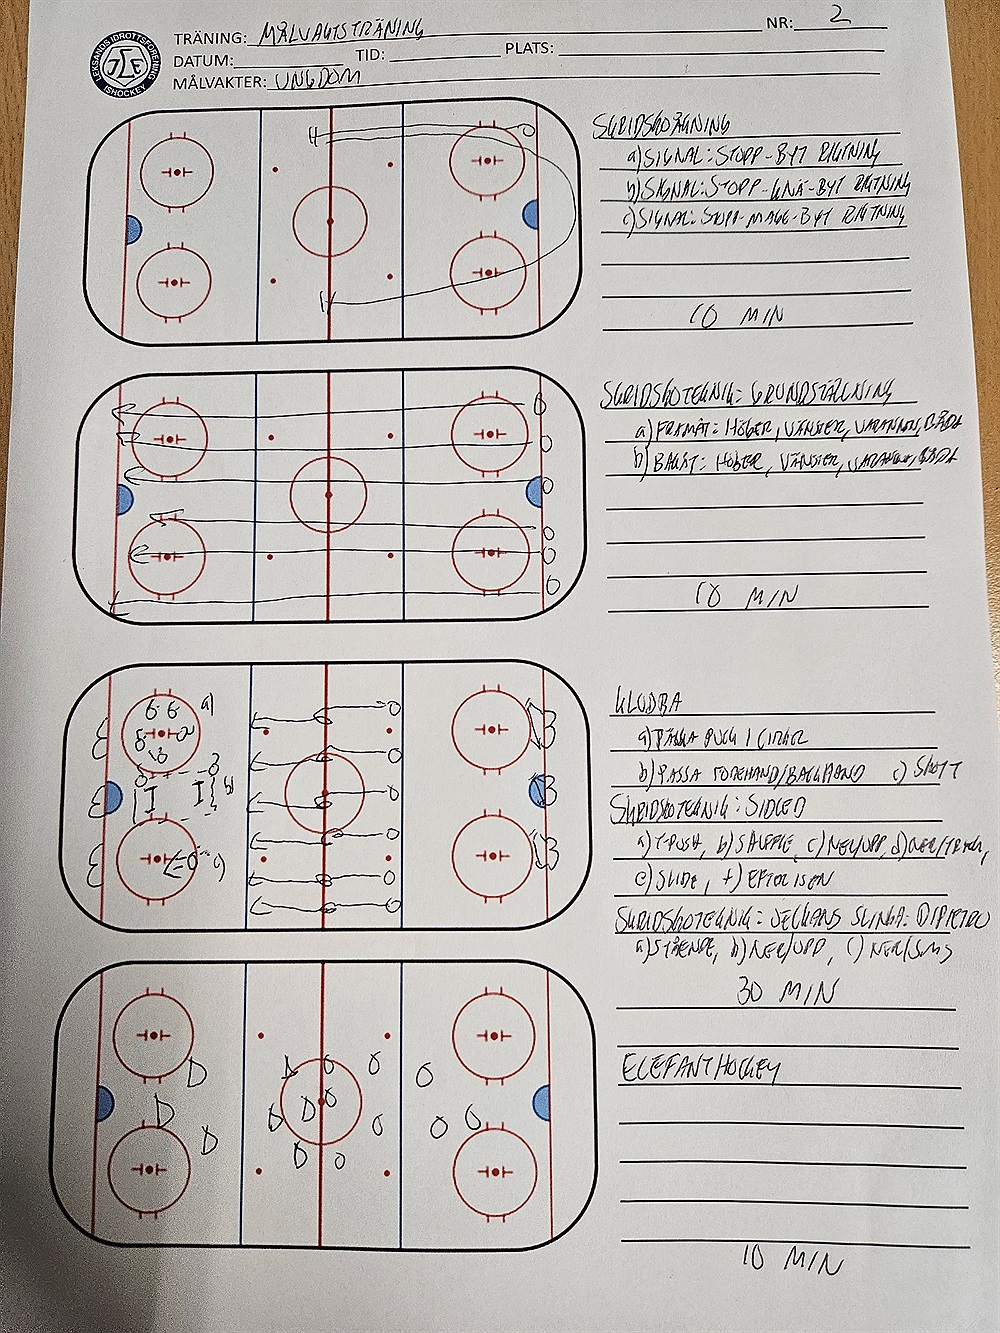 TRÄNING: MÅLVAKTSTRÄNING NR: 2
DATUM: TID: PLATS:
MÅLVAKTER: UNGDOM
LEKSANDS IDROTTSFÖRENING
ISHOCKEY
SKRIDSKOÅKNING
a) SIGNAL: STOPP-BYT RIKTNING
b) SIGNAL: STOPP-KNÄ-BYT RIKTNING
c) SIGNAL: STOPP-MAGE-BYT RIKTNING
10 MIN
SKRIDSKOTEKNIK: GRUNDSTÄLLNING
a) FRAMÅT: HÖGER, VÄNSTER, VARANNAN, BÅDA
b) BAKÅT: HÖGER, VÄNSTER, VARANNAN, BÅDA
10 MIN
KLUBBA
a) TÄCKA PUCK I CIRKEL
b) PASSA FOREHAND/BACKHAND c) SKOTT
SKRIDSKOTEKNIK: SIDLED
a) T-PUSH, b) SHUFFLE, c) NER/UPP, d) NER/
e) SLIDE, f) EFTER ISEN
SKRIDSKOTEKNIK: SLINGA: DIPIETRO
a) STÅENDE, b) NER/UPP, c) NER/
30 MIN
a)
b)
c)
ELEFANTHOCKEY
10 MIN